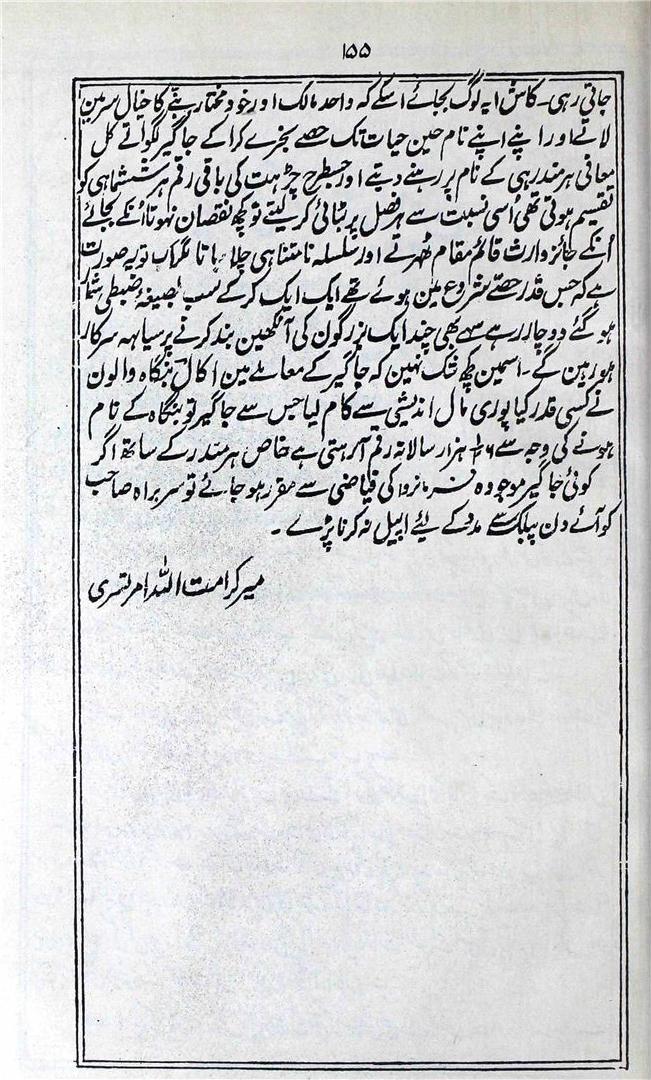 ۱۵۵
جاتی رہی۔ کاش ایہ لوگ بجائے اسکے کہ واحد مالک اور خود مختار بننے کا خیال سر مین
لاتے اور اپنے اپنے نام حین حیات تک حصے بخرے کرا کے جاگیر لگواتے کل
معافی ہرمندر ہی کے نام پر رہنے دیتے اور جسطرح چڑہت کی باقی رقم ہر ششماہی کو
تقسیم ہوتی تھی اُسی نسبت سے ہر فصل پر بٹائی کر لیتے تو کچھ نقصان نہوتا اُنکے بجائے
اُنکے جائز وارث قائم مقام ٹھرتے اور سلسلہ نامتناہی چلا جاتا مگر اب تو یہ صورت
ہے کہ جس قدر حصے شروع مین ہوئے تھے ایک ایک کر کے سب بصیغۂ ضبطی شمار
ہو گئے دو چار رہے سہے بھی چند ایک بزرگون کی آنکھین بند کرنے پر سیاہہ سرکار
ہو رہین گے۔ اسمین کچھ شک نہین کہ جاگیر کے معاملے مین اکال بنگاہ والون
نے کسی قدر کیا پوری مال اندیشی سے کام لیا جس سے جاگیر تو بنگاہ کے نام
ہونے کی وجہ سے ہزار سالانہ رقم آ رہتی ہے خاص ہرمندر کے ساتھ اگر
کوئی جاگیر موجودہ فرمانروا کی فیاضی سے مقرر ہو جائے تو سربراہ صاحب
کو آئے دن پبلک سے مدد کے لیئے اپیل نہ کرنا پڑے۔
میر کرامت اللہ امرتسری